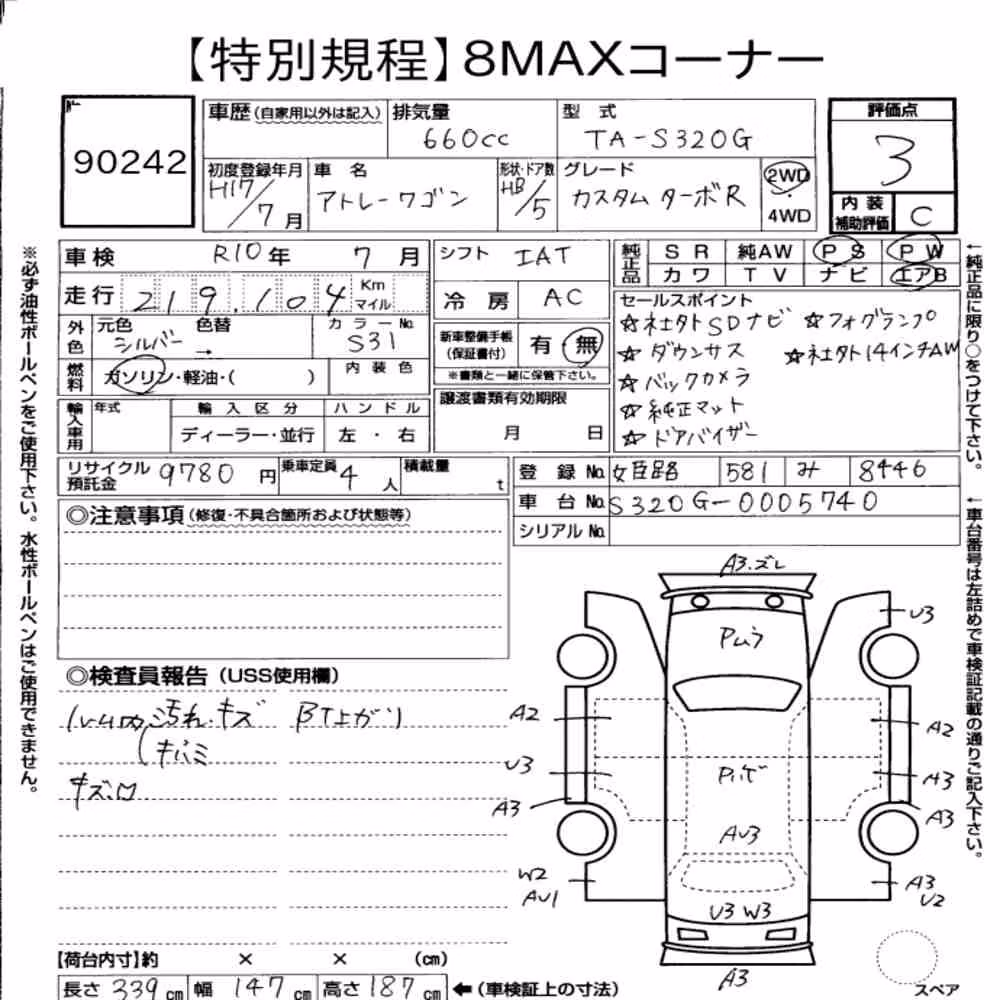 【特別規程】8MAXコーナー
90242
車歴(自家用以外は記入)
排気量
660cc
型 式
TA-S320G
評価点
3
初度登録年月
H17/7月
車 名
アトレーワゴン
形状・ドア数
HB/5
グレード
カスタム ターボR
2WD
・
4WD
内 装
補助評価
C
車検 R10年 7月
シフト IAT
純正品
SR 純AW PS PW
カワ TV ナビ エアB
走行 219,104 Km マイル
冷 房 AC
セールスポイント
☆社外SDナビ ☆フォグランプ
☆ダウンサス ☆社外14インチAW
☆バックカメラ
☆純正マット
☆ドアバイザー
外色
元色 シルバー
色替 →
カラーNo. S31
新車整備手帳
(保証書付)
有 無
※書類と一緒に保管下さい。
燃料
ガソリン・軽油・( )
内 装 色
輸入車用
年式
輸 入 区 分
ハ ン ド ル
ディーラー・並行
左 ・ 右
譲渡書類有効期限
月 日
リサイクル
預託金
9780円
乗車定員 4人
積載量 t
登 録 No. 姫路 581 み 8446
車 台 No. S320G-0005740
シリアル No.
◎注意事項(修復・不具合箇所および状態等)
◎検査員報告(USS使用欄)
汚れ・キズ BT上がり
キバミ
キズ.
※必ず油性ボールペンをご使用下さい。水性ボールペンはご使用できません。
←純正品に限り○をつけて下さい。
←車台番号は左詰めで車検証記載の通りご記入下さい。
A3.ズレ
Pムラ
U3
A2
A2
U3
Pボ
A3
A3
A3
AU3
W2
AU1
A3
U2
U3 W3
A3
スペア
【荷台内寸】約 × × (cm)
長さ 339cm 幅 147cm 高さ 187cm ←(車検証上の寸法)